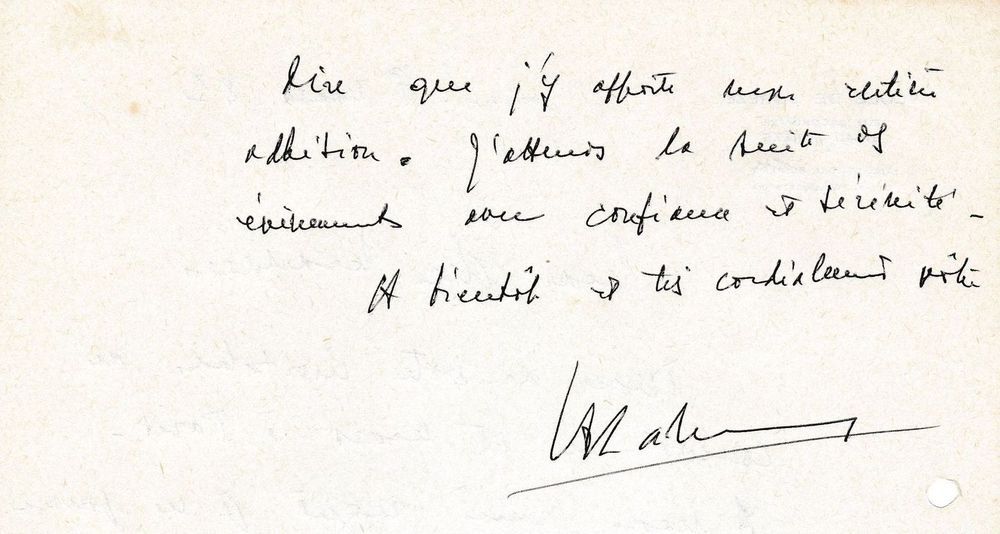 dire que j'y apporte mon entière
adhésion. J'attends la suite des
événements avec confiance et sérénité -
A bientôt et très cordialement vôtre